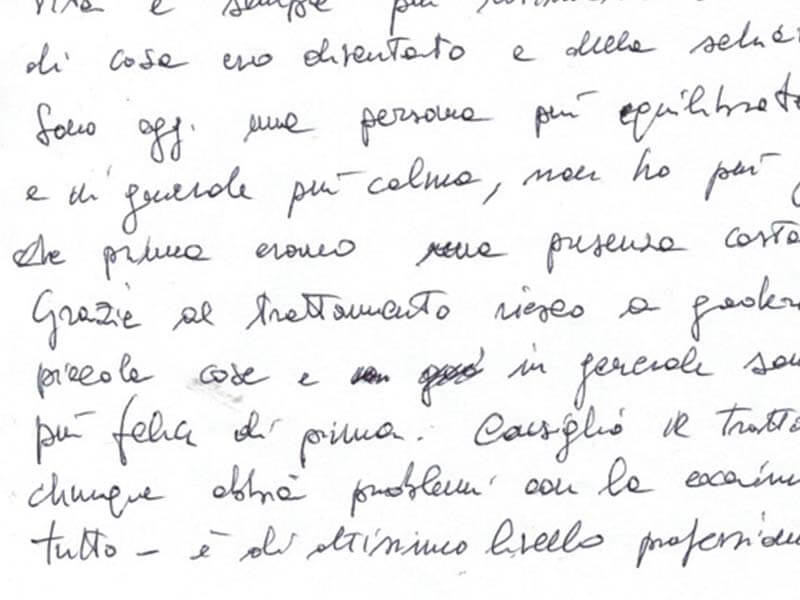 vita è sempre più
di cosa ero diventato e della
Sono oggi una persona più equilibrat
e in generale più calma, non ho più
che prima erano una presenza costa
Grazie al trattamento riesco a goder
piccole cose e in generale son
più felice di prima. Consiglio il tratta
chiunque abbia problemi con la cocaina
tutto - è di altissimo livello professiona